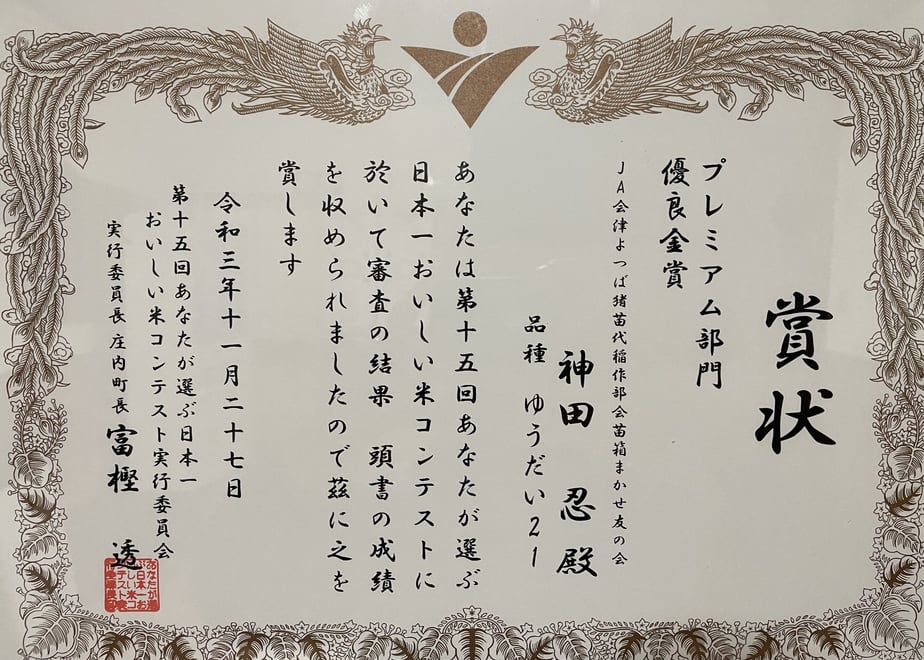 賞状
プレミアム部門
優良金賞
JA会津よつば猪苗代稲作部会苗箱まかせ友の会
神田 忍 殿
品種 ゆうだい21
あなたは第十五回あなたが選ぶ
日本一おいしい米コンテストに
於いて審査の結果 頭書の成績
を収められましたので茲に之を
賞します
令和三年十一月二十七日
第十五回あなたが選ぶ日本一
おいしい米コンテスト実行委員会
実行委員長 庄内町長 富樫 透